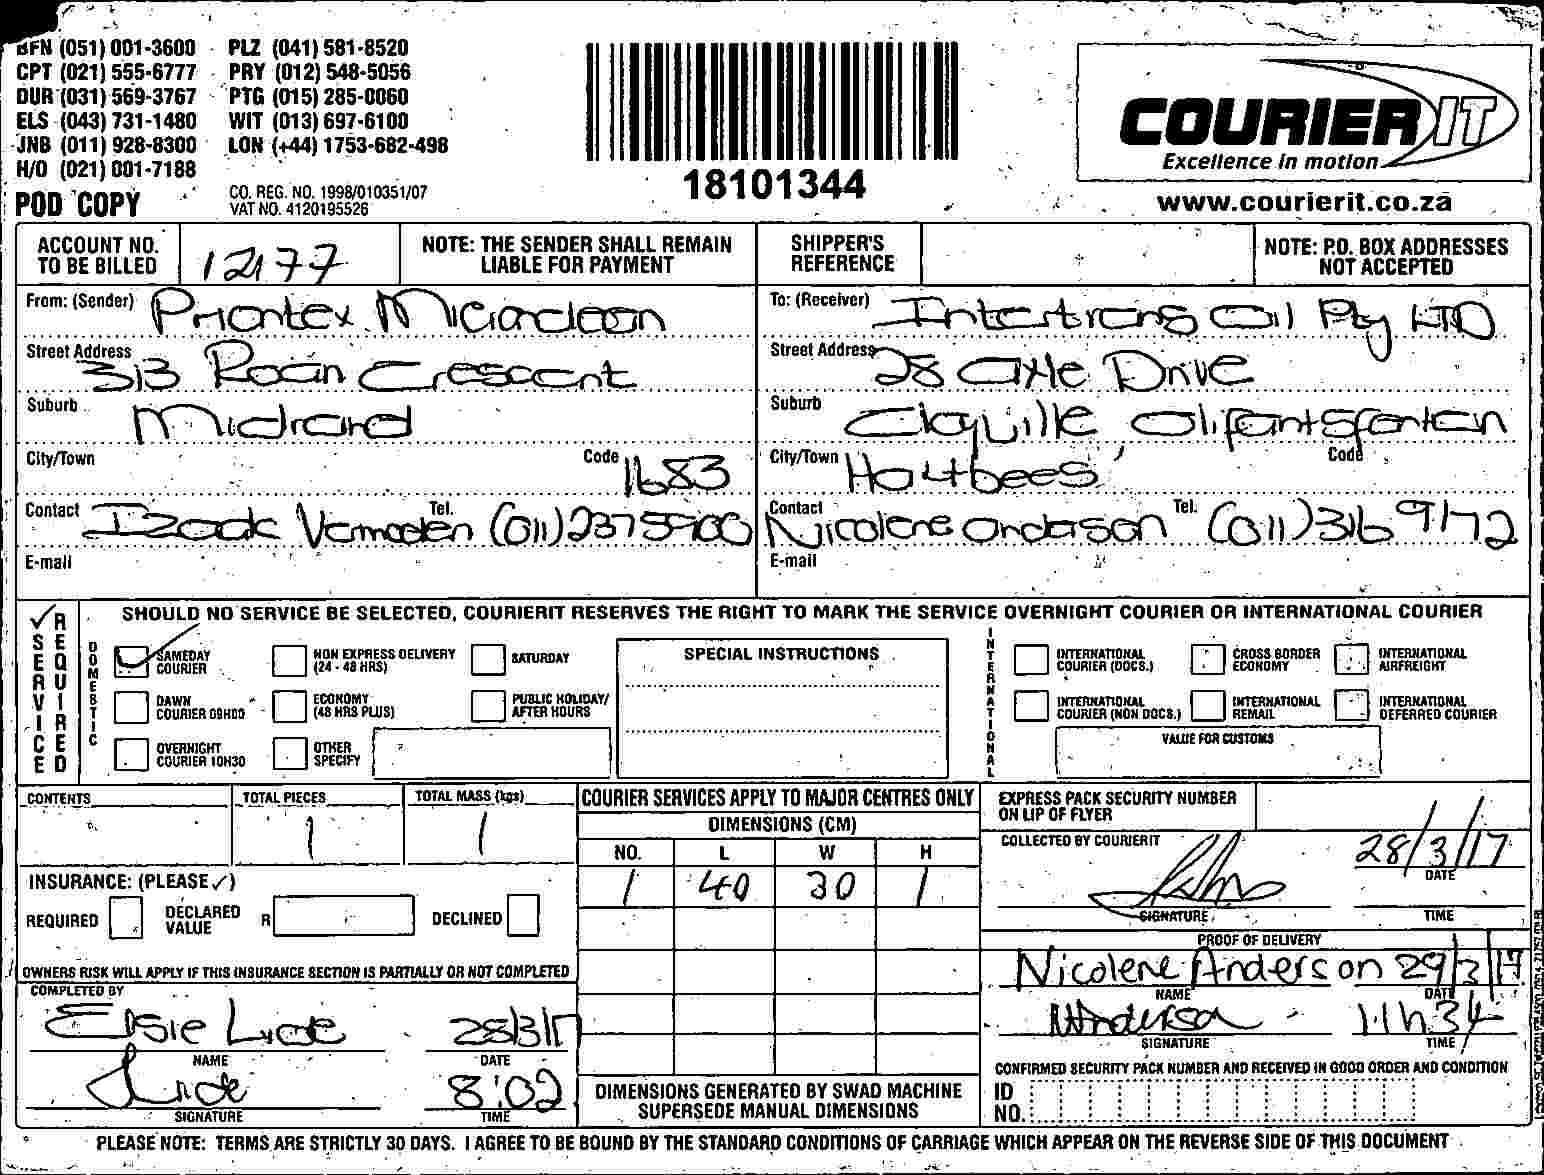 BFN (051) 001-3600 PLZ (041) 581-8520
CPT (021) 555-6777 PRY (012) 548-5056
DUR (031) 569-3767 PTG (015) 285-0060
ELS (043) 731-1480 WIT (013) 697-6100
JNB (011) 928-8300 LON (+44) 1753-682-498
H/O (021) 001-7188
POD COPY
CO. REG. NO. 1998/010351/07
VAT NO. 4120195526
18101344
COURIER IT
Excellence in motion
www.courierit.co.za
ACCOUNT NO. TO BE BILLED 12177
NOTE: THE SENDER SHALL REMAIN LIABLE FOR PAYMENT
SHIPPER'S REFERENCE
NOTE: P.O. BOX ADDRESSES NOT ACCEPTED
From: (Sender) Priontex Microclean
Street Address 313 Roan Crescent
Suburb Midrand
City/Town Code 1683
Contact Izaak Tel. (011)2375900
E-mail
To: (Receiver) Intertrans Oil Pty LTD
Street Address 28 Axle Drive
Suburb Clayville, Olifantsfontein
City/Town Hartbees Code
Contact Nicolene Anderson Tel. (011)316 9172
E-mail
✓ SERVICE REQUIRED
SHOULD NO SERVICE BE SELECTED, COURIERIT RESERVES THE RIGHT TO MARK THE SERVICE OVERNIGHT COURIER OR INTERNATIONAL COURIER
DOMESTIC
✓ SAMEDAY COURIER
NON EXPRESS DELIVERY (24 - 48 HRS)
SATURDAY
DAWN COURIER 09H00
ECONOMY (48 HRS PLUS)
PUBLIC HOLIDAY/ AFTER HOURS
OVERNIGHT COURIER 10H30
OTHER SPECIFY
SPECIAL INSTRUCTIONS
INTERNATIONAL
INTERNATIONAL COURIER (DOCS.)
CROSS BORDER ECONOMY
INTERNATIONAL AIRFREIGHT
INTERNATIONAL COURIER (NON DOCS.)
INTERNATIONAL REMAIL
INTERNATIONAL DEFERRED COURIER
VALUE FOR CUSTOMS
CONTENTS
TOTAL PIECES 1
TOTAL MASS (kgs) 1
INSURANCE: (PLEASE ✓)
REQUIRED DECLARED VALUE R DECLINED
OWNERS RISK WILL APPLY IF THIS INSURANCE SECTION IS PARTIALLY OR NOT COMPLETED
COMPLETED BY
Elsie 28/3/17
NAME DATE
8:02
SIGNATURE TIME
COURIER SERVICES APPLY TO MAJOR CENTRES ONLY
DIMENSIONS (CM)
NO. L W H
1 40 30 1
DIMENSIONS GENERATED BY SWAD MACHINE
SUPERSEDE MANUAL DIMENSIONS
EXPRESS PACK SECURITY NUMBER
ON LIP OF FLYER
COLLECTED BY COURIERIT
28/3/17
DATE
SIGNATURE TIME
PROOF OF DELIVERY
Nicolene Anderson 29/3/17
NAME DATE
NAnderson 11h34
SIGNATURE TIME
CONFIRMED SECURITY PACK NUMBER AND RECEIVED IN GOOD ORDER AND CONDITION
ID NO.
PLEASE NOTE: TERMS ARE STRICTLY 30 DAYS. I AGREE TO BE BOUND BY THE STANDARD CONDITIONS OF CARRIAGE WHICH APPEAR ON THE REVERSE SIDE OF THIS DOCUMENT